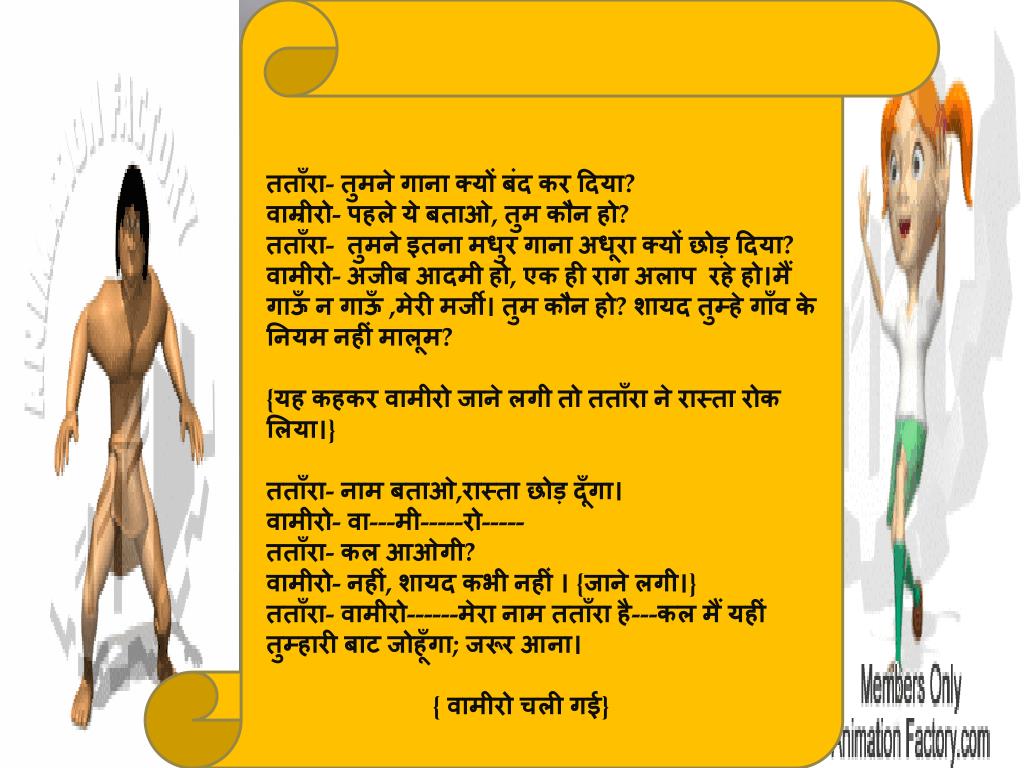 तताँरा- तुमने गाना क्यों बंद कर दिया?
वाम्रीरो- पहले ये बताओ, तुम कौन हो?
तताँरा-  तुमने इतना मधुर गाना अधूरा क्यों छोड़ दिया?
वामीरो- अजीब आदमी हो, एक ही राग अलाप  रहे हो।मैं
गाऊँ न गाऊँ ,मेरी मर्जी। तुम कौन हो? शायद तुम्हे गाँव के
नियम नहीं मालूम?
{यह कहकर वामीरो जाने लगी तो तताँरा ने रास्ता रोक
लिया।}
तताँरा- नाम बताओ,रास्ता छोड़ दूँगा।
वामीरो- वा---मी-----रो-----
तताँरा- कल आओगी?
वामीरो- नहीं, शायद कभी नहीं । {जाने लगी।}
तताँरा- वामीरो------मेरा नाम तताँरा है---कल मैं यहीं
तुम्हारी बाट जोहूँगा; जरूर आना।
{ वामीरो चली गई}
Members Only
Animation Factory.com